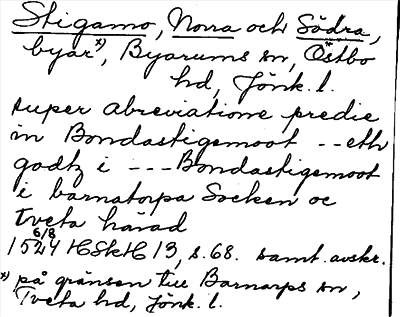 Stigamo, Norra och Södra,
byar*), Byarums sn, Östbo
hd, Jönk. l.
super abreviatione predie
in Bondastigsmoot -- eth
godtz i --- Bondastigsmoot
i barnatorpa Socken oc
Tveta härad
1524 6/8 HSkH 13, s. 68. samt. avskr.
*) på gränsen till Barnarps sn,
Tveta hd, Jönk. l.